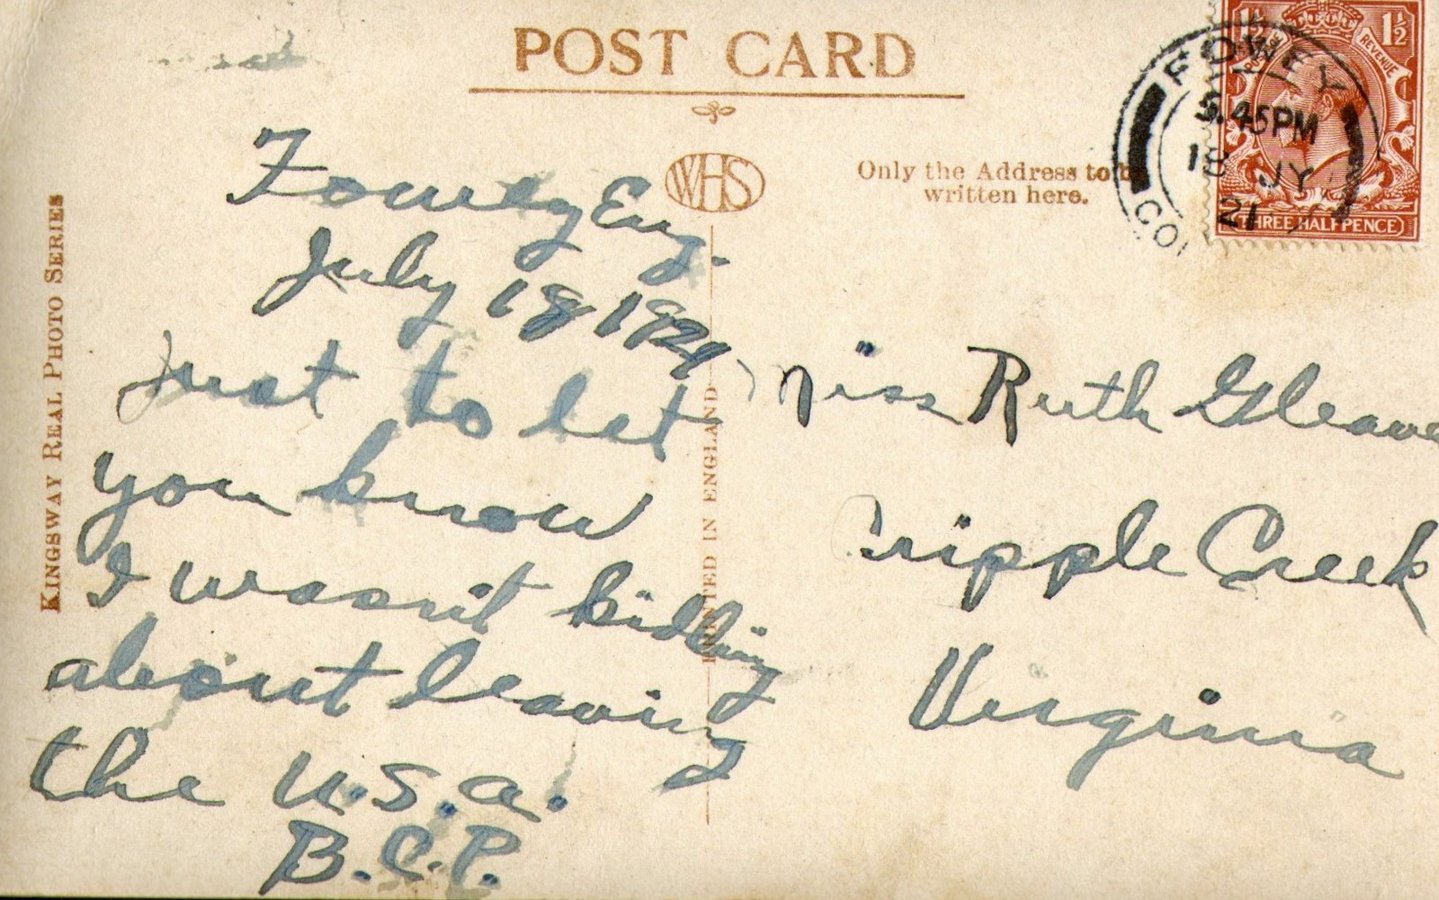 POST CARD
WHS
Only the Address to b
written here.
KINGSWAY REAL PHOTO SERIES
PRINTED IN ENGLAND
1½
REVENUE
THREE HALFPENCE
FOWEY
3.45PM
18 JY
21
CO
Fowey Eng.
July 18 1921
Just to let
you know
I wasn't kidding
about leaving
the U.S.A.
B.C.P.
Miss Ruth Gleave
Cripple Creek
Virginia